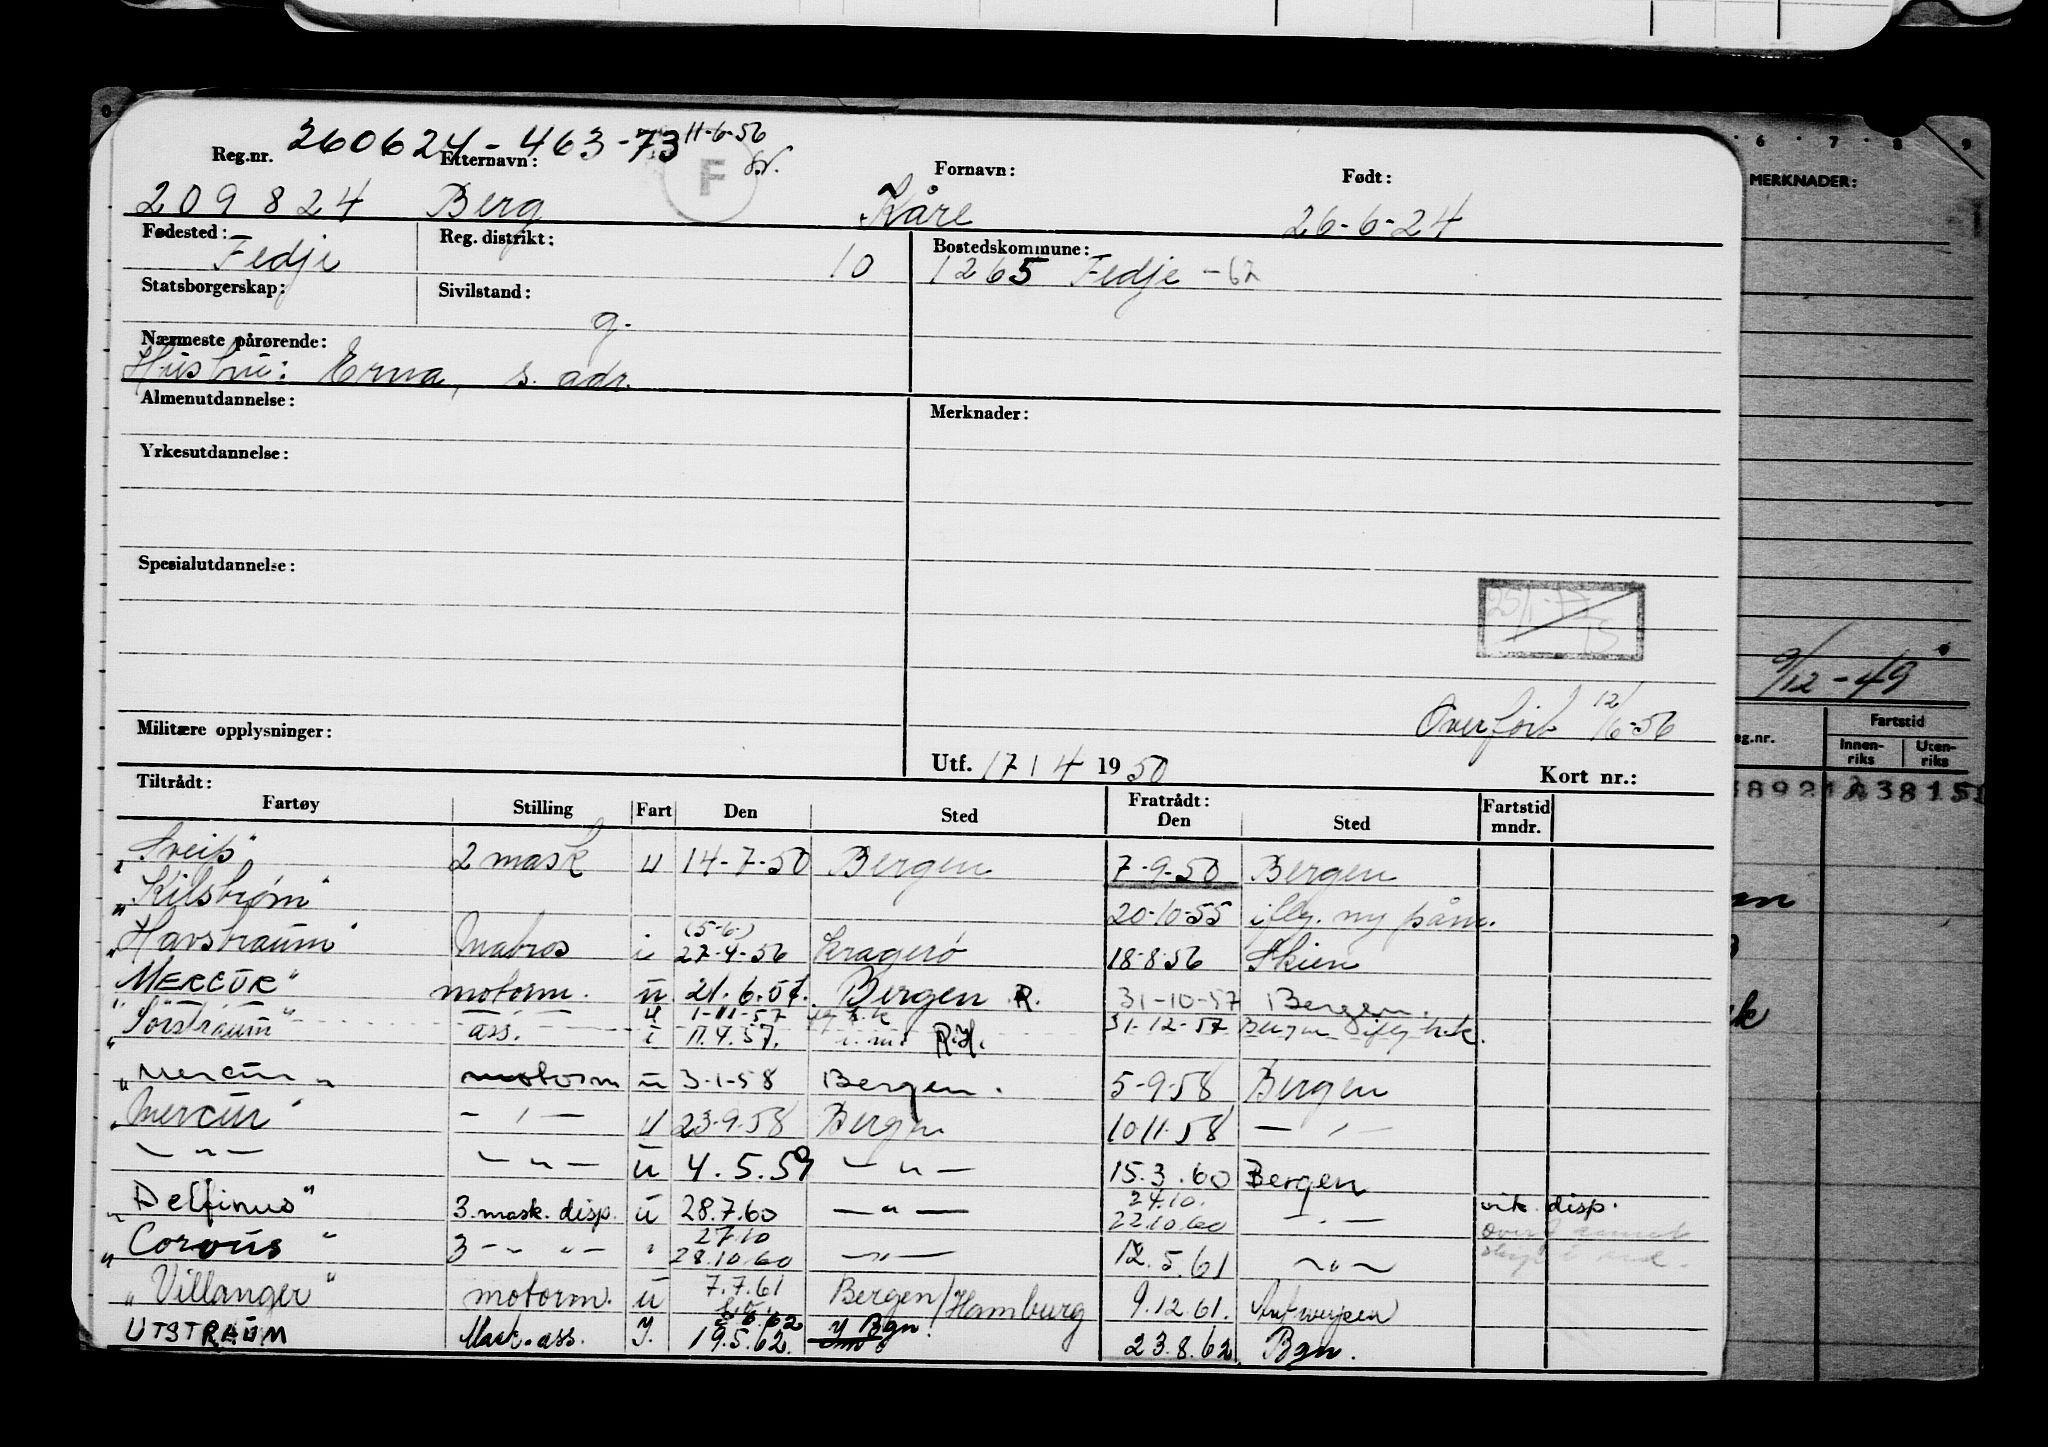 260624-463-73 11-6-56
Reg.nr. Etternavn: F Fornavn: Født:
209824 Berg Kåre 26-6-24
Fødested: Fedje Reg. distrikt: 10 Bostedskommune: 1265 Fedje -62
Statsborgerskap: Sivilstand: g.
Nærmeste pårørende:
Hustru: Erna, s. adr.
Almenutdannelse: Merknader:
Yrkesutdannelse:
Spesialutdannelse:
Overført 12/6-56
Militære opplysninger:
Utf. 17/4 1950 Kort nr.:
Tiltrådt: Fratrådt:
Fartøy Stilling Fart Den Sted Den Sted Fartstid mndr.
"Sveip" 2 mask u 14-7-50 Bergen 7-9-50 Bergen
"Kilstrøm" 20-10-55 iflg. ny påm.
(5-6.)
"Havstraum" Matros i 27-4-56 Kragerø 18-8-56 Skien
"MERCUR" motorm. u 21.6.57. Bergen R. 31-10-57 Bergen.
u 1-11-57 31-12-57 Bergen iflg h.k.
"Sørstraum" ass. i 11.4.57. R.H.
"Mercur" motorm u 3-1-58 Bergen. 5-9-58 Bergen
"Mercur" - " - u 23.9.58 Bergen 10.11.58 - " -
- " - - " - u 4.5.59 - " - 15.3.60 Bergen
24.10.
"Delfinus" 3. mask. disp. u 28.7.60 - " - 22.10.60 - " - vik. disp.
27.10
"Corvus" 3 - " - " - " 28.10.60 - " - 12.5.61 - " -
"Villanger" motorm. u 7.7.61 Bergen/Hamburg 9.12.61. Antwerpen
UTSTRAUM Mask.ass. I. 19.5.62. Bgn. 23.8.62 Bgn.
6 7 8 9
MERKNADER:
9/12-49
Fartstid
Innen-riks Uten-riks